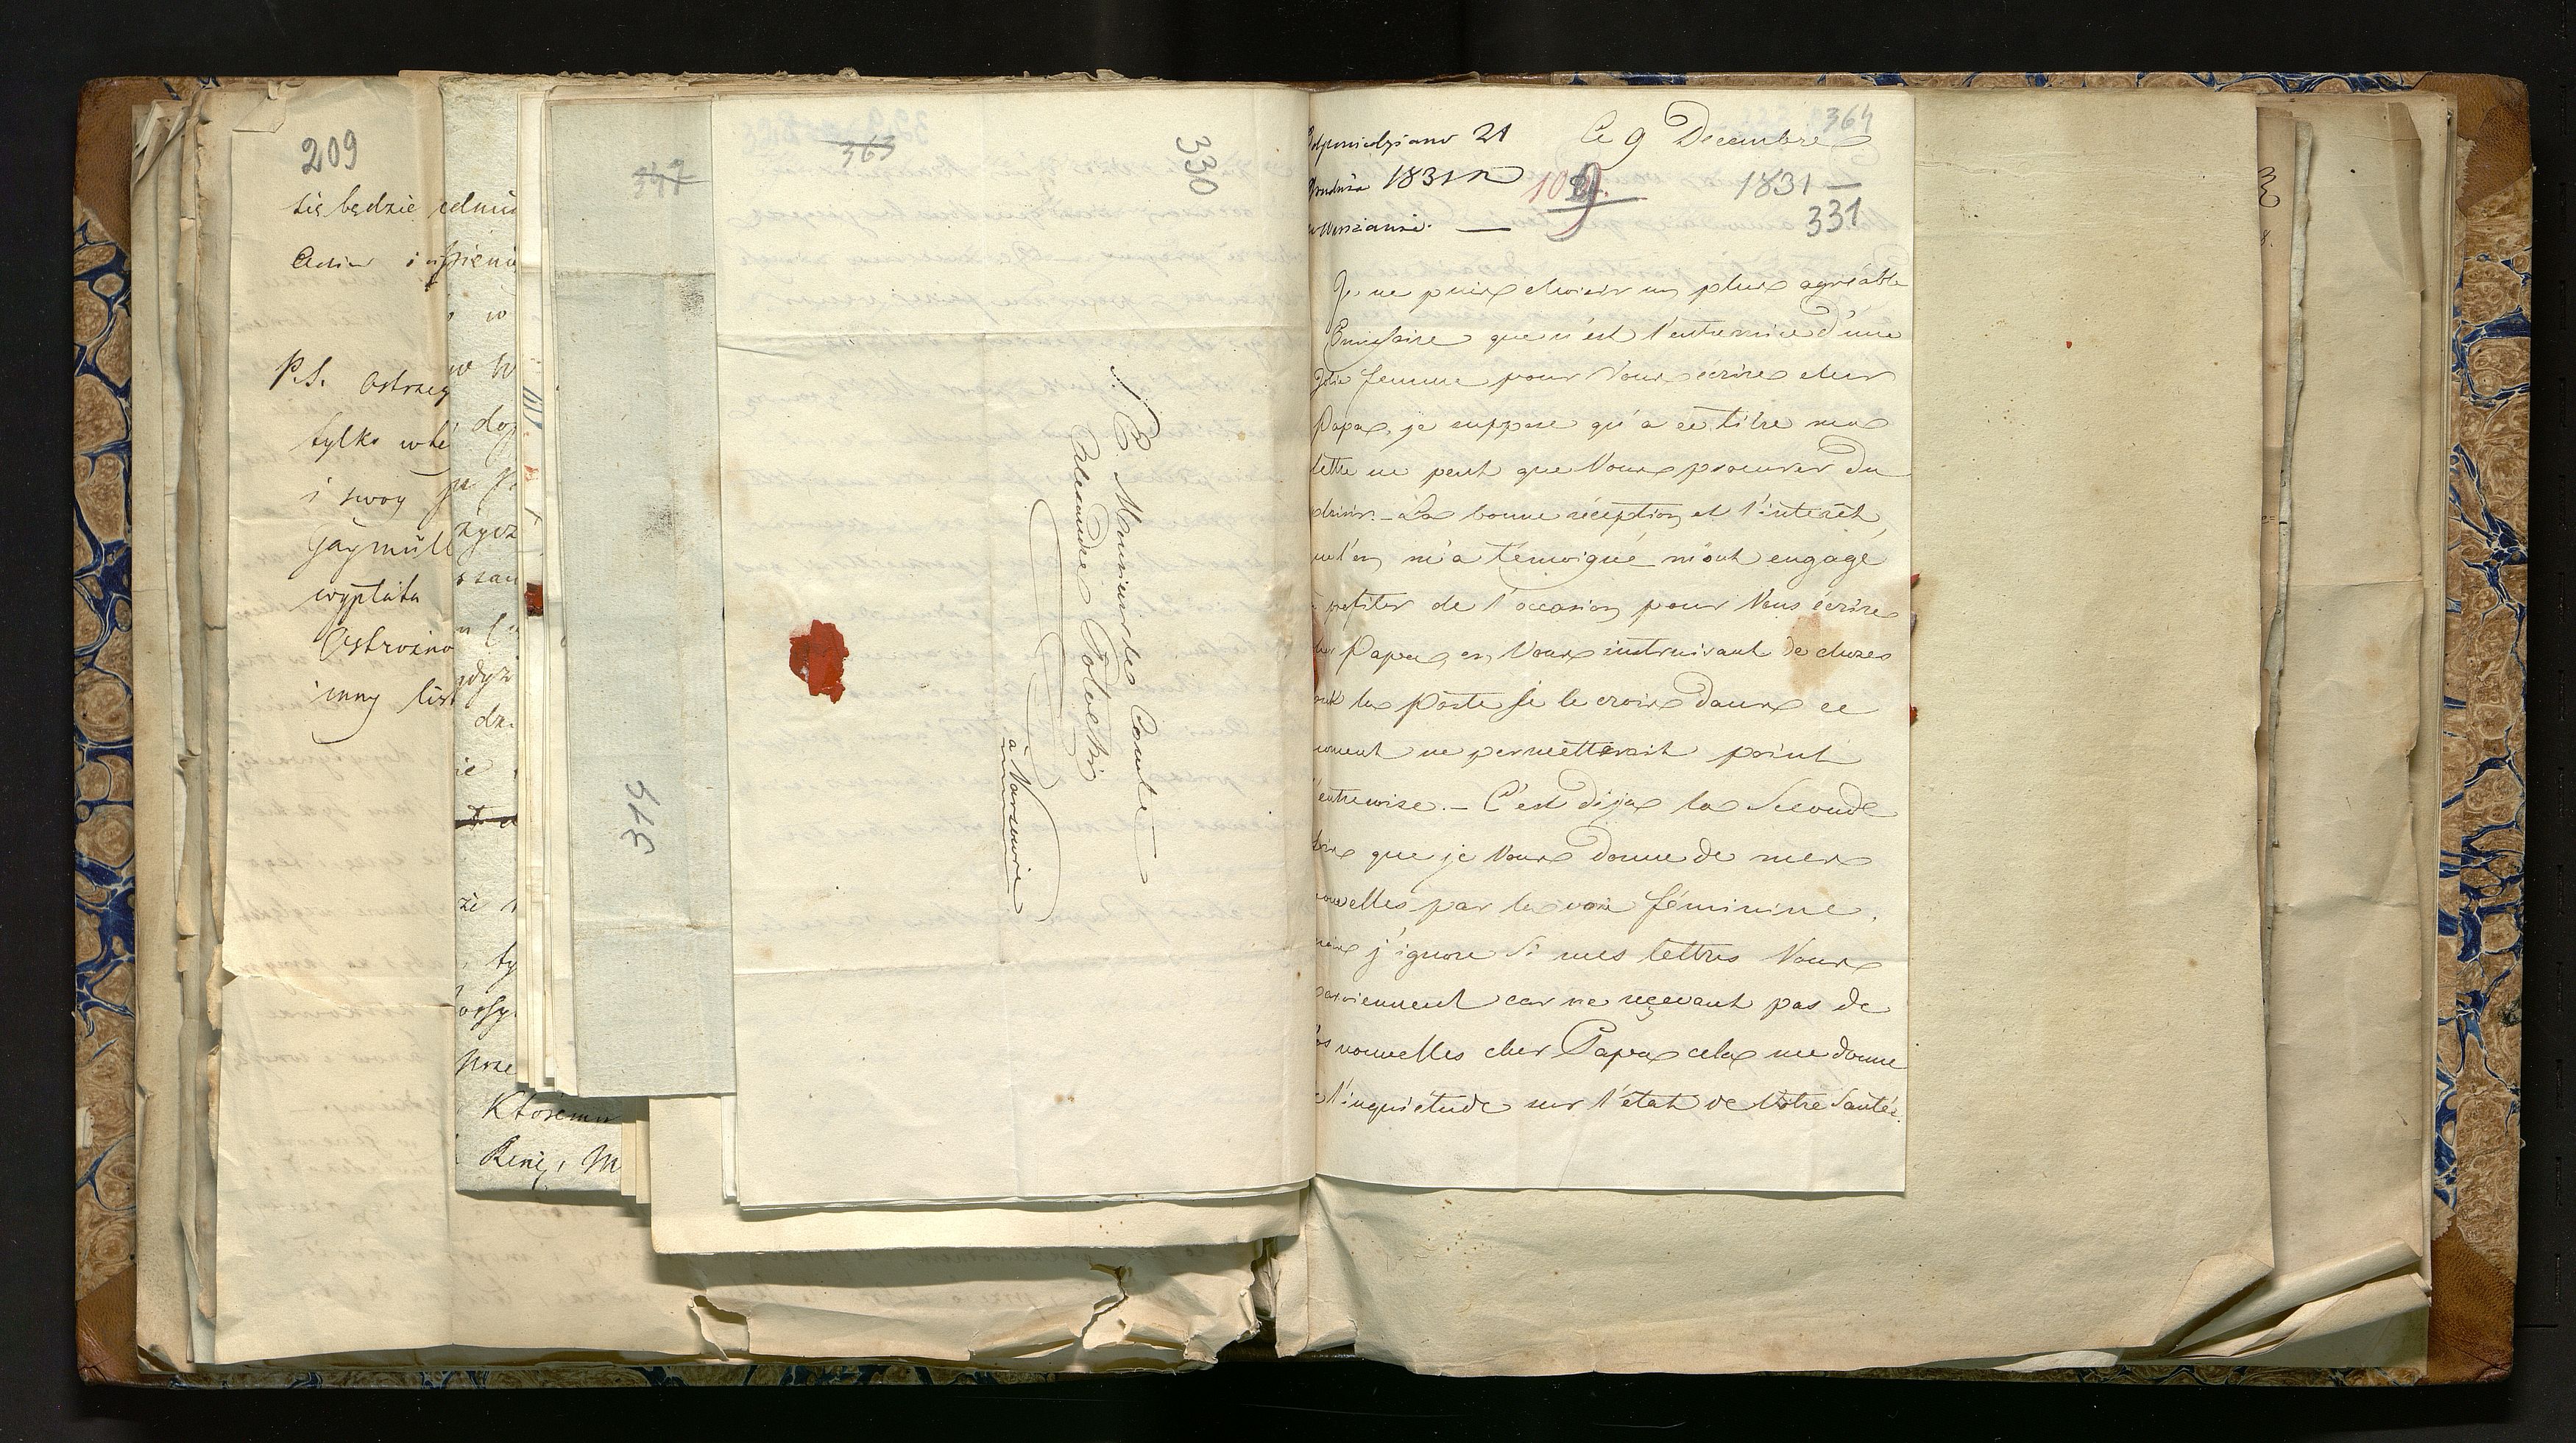 209
się będzie
P.S. Ostrzeg
tylko
i swoy
wypłata
Ostrożno
inny list
Któremu
347
319
363
330
S. E. Monsieur le Comte
Alexandre Potocki
à Varsovie
364
Odpowiedziano 21
Grudnia 1831 r
w Warszawie. —
109.
Ce 9 Decembre
1831 —
331
Je ne puis choisir un plus agréable
Emissaire que n'est l'entremise d'une
jolie femme pour Vous écrire cher
Papa, je suppose qu'à ce titre ma
lettre ne peut que Vous procurer du
plaisir. – La bonne réception et l'intérêt,
que l'on m'a témoigné m'ont engagé
à profiter de l'occasion pour Vous écrire
cher Papa, en Vous instruisant de choses
dont la poste je le crois dans ce
moment ne permetterait point
l'entremise. – C'est dija la Seconde
fois que je Vous donne de mes
nouvelles par la voie féminine,
mais j'ignore si mes lettres Vous
parviennent car ne reçevant pas de
Vos nouvelles cher Papa cela me donne
de l'inquiétude sur l'état de Votre Santé.